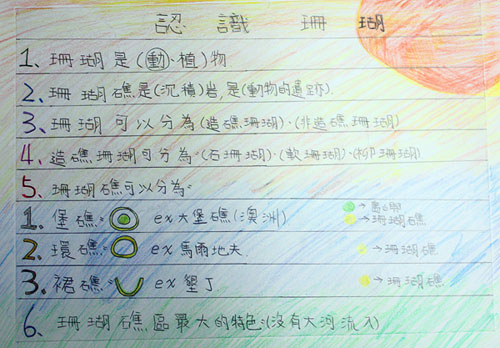 認識珊瑚
1、珊瑚是(動、植)物
2、珊瑚礁是(沉積)岩,是(動物的遺跡)
3、珊瑚可以分為(造礁珊瑚)、(非造礁珊瑚)
4、造礁珊瑚可分為:(石珊瑚)、(軟珊瑚)、(柳珊瑚)
5、珊瑚礁可以分為:
1.堡礁: ex大堡礁(澳洲) → →珊瑚礁
2.環礁: ex馬爾地夫. →珊瑚礁
3.裙礁: ex墾丁 →珊瑚礁
6、珊瑚礁區最大的特色:(沒有大河流入)